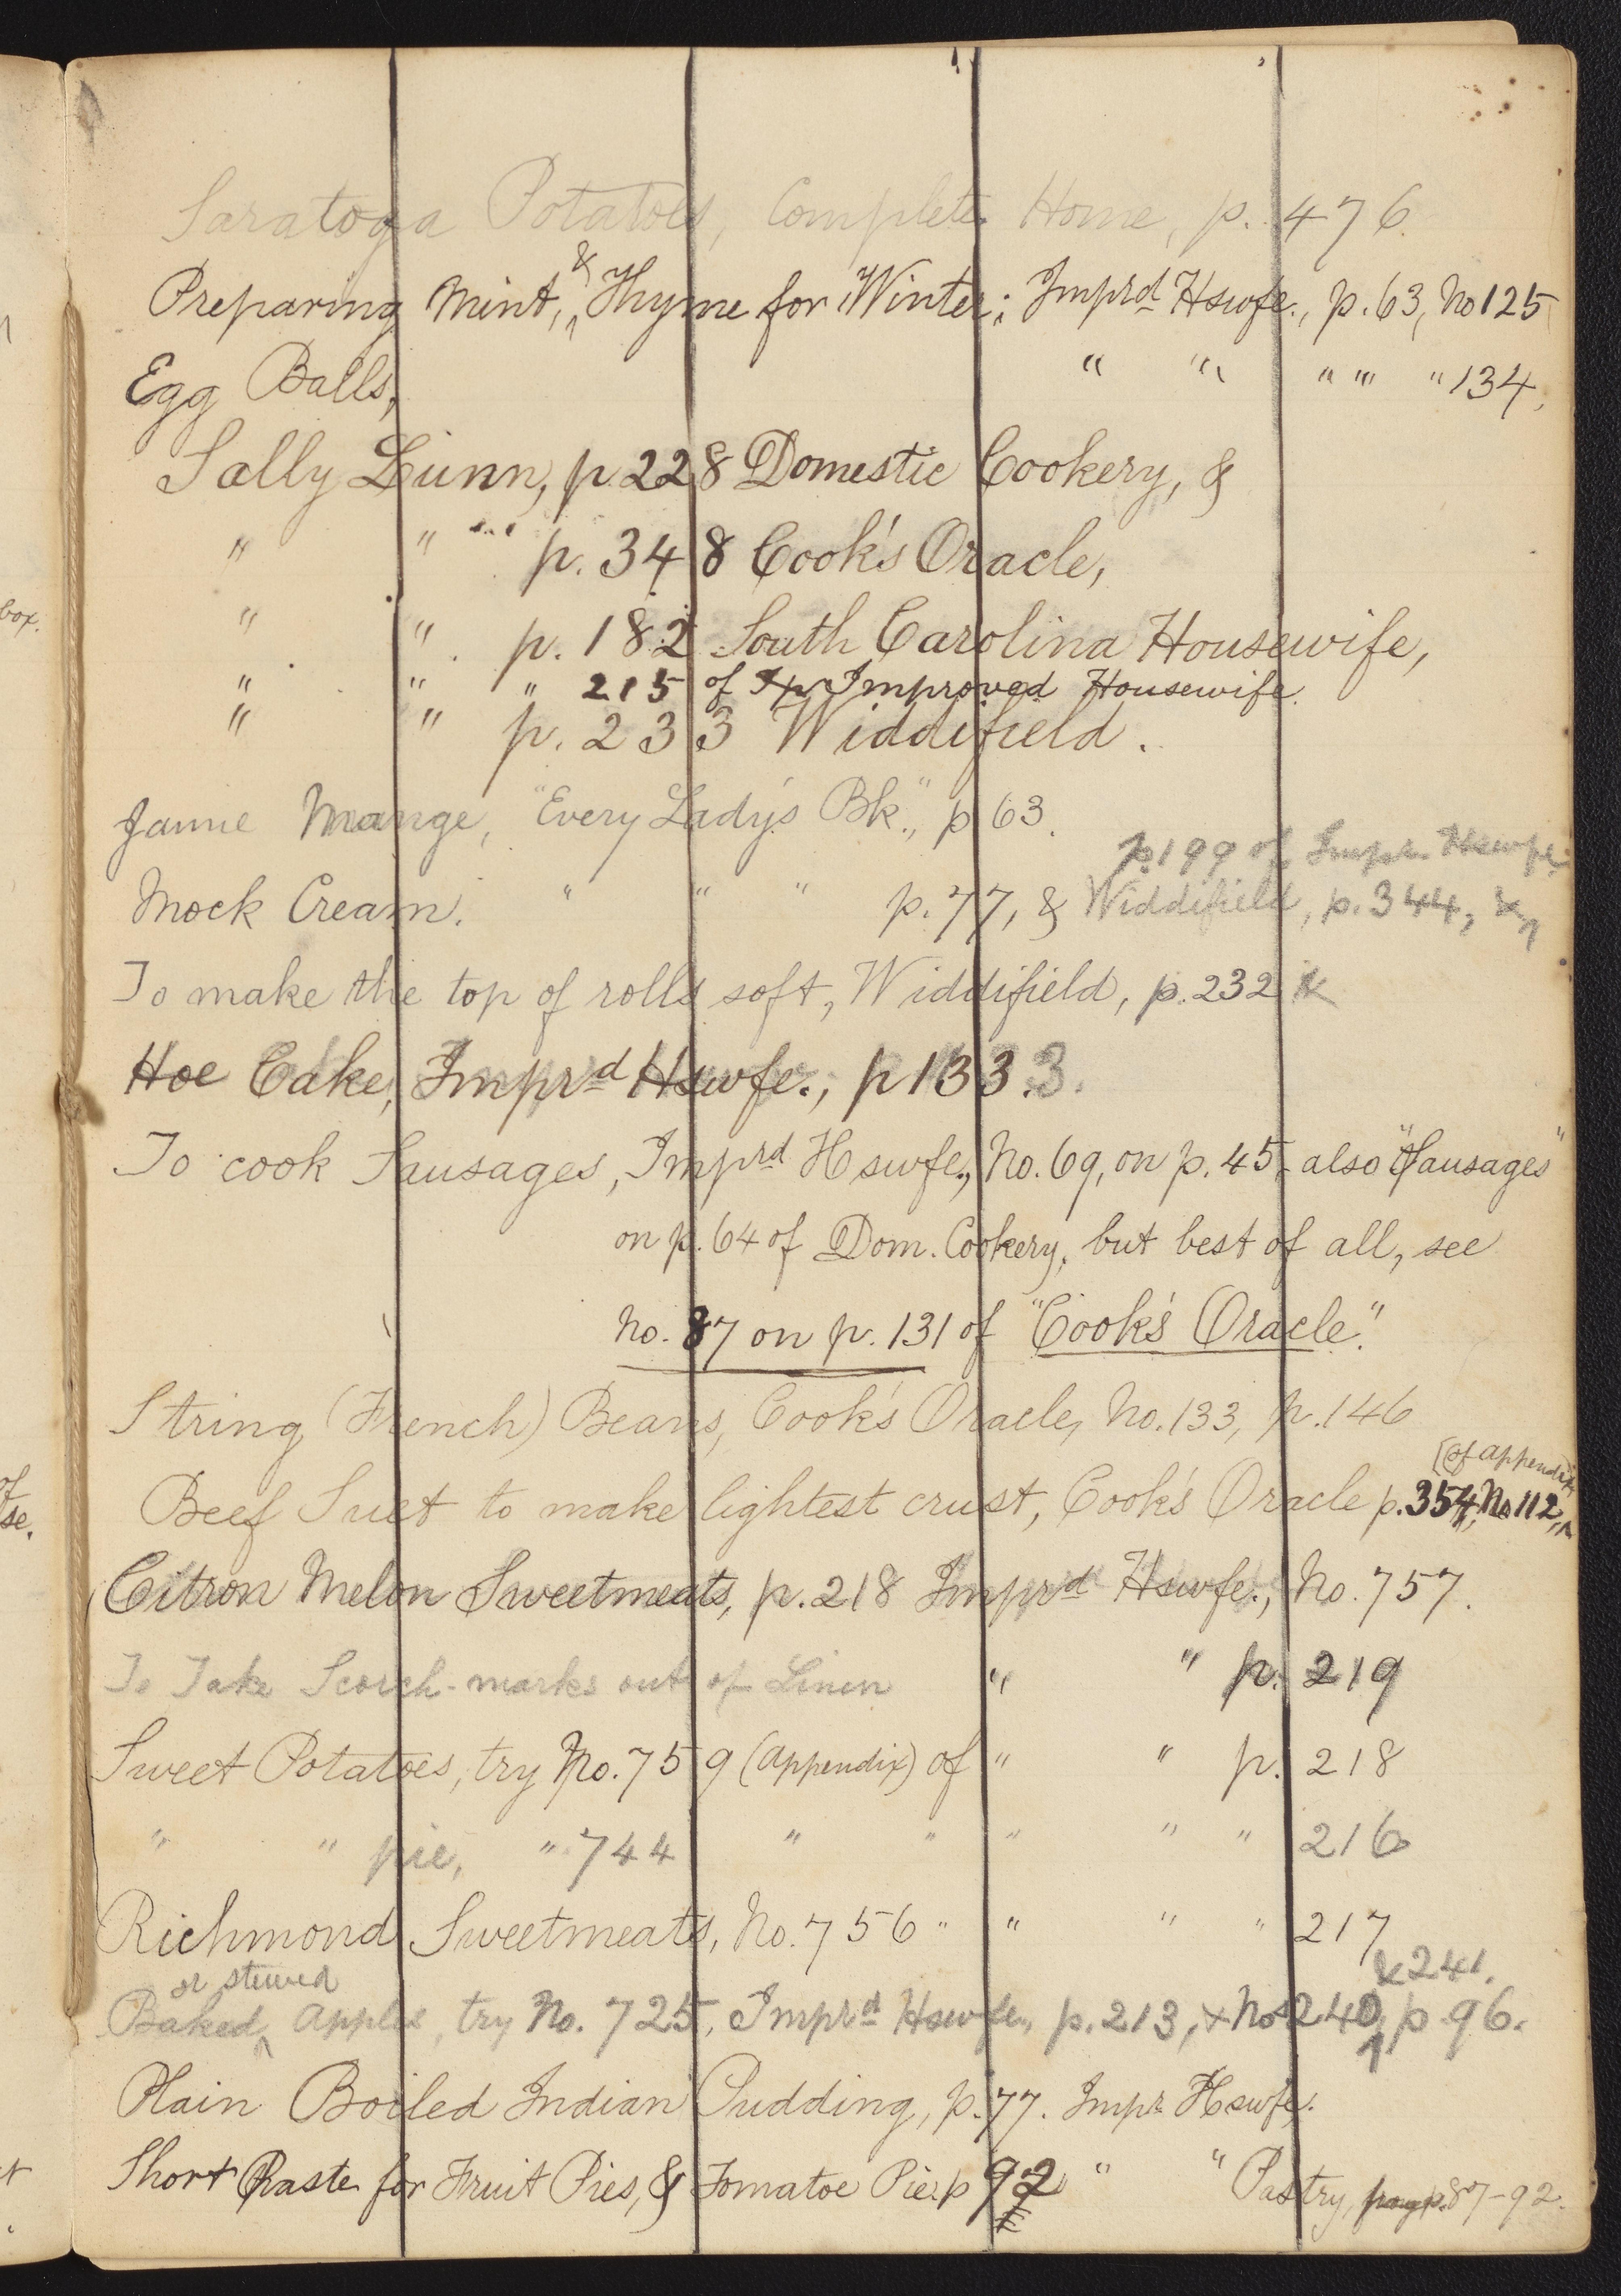 Saratoga Potatoes, Complete Home, p. 476.
Preparing Mint, & Thyme for Winter; Imprd Hswfe., p. 63, No 125
Egg Balls, " " " "" " 134,
Sally Lunn, p. 228 Domestic Cookery, &
" " " p. 348 Cook's Oracle,
" " p. 182 South Carolina Housewife,
" " " 215 of Improved Housewife.
" " p. 233 Widdifield.
Jaune Mange, "Every Lady's Bk.", p 63.
p. 199 of Impr. Hswfe.
Mock Cream. " " " p. 77, & Widdifield, p. 344, &
To make the top of rolls soft, Widdifield, p. 232
Hoe Cake, Imprd Hswfe., p 133.
To cook Sausages, Imprd Hswfe., No. 69, on p. 45, also "Sausages"
on p. 64 of Dom. Cookery, but best of all, see
No. 87 on p. 131 of "Cook's Oracle."
String (French) Beans, Cook's Oracle, No. 133, p. 146
[of appendix
Beef Suet to make lightest crust, Cook's Oracle p. 354, No 112,
Citron Melon Sweetmeats, p. 218 Imprd Hswfe., No. 757.
To Take Scorch-marks out of Linen " " p. 219
Sweet Potatoes, try No. 759 (Appendix) of " " p. 218
" " pie, " 744 " " " " " 216
Richmond Sweetmeats, No. 756 " " " " 217
& 241.
or stewed
Baked Apples, try No. 725, Imprd Hswfe, p. 213, & Nos 240, p. 96.
Plain Boiled Indian Pudding, p. 77. Impr Hswfe.
Short Paste for Fruit Pies, & Tomatoe Pie. p 92 " " Pastry, p. 87-92.